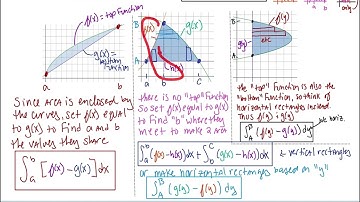 f(x) = top function
g(x) = bottom function
a
b
Since area is enclosed by
the curves, set f(x) equal
to g(x) to find a and b
the values they share
∫ₐᵇ [f(x) - g(x)] dx
B
f(x)
g(x)
h(x)
A
a
b
C
there is no "top" function
So set f(x) equal to g(x)
to find "b" where they
meet to make 2 area
∫ₐᵇ (f(x) - h(x)) dx + ∫ᵇC (g(x) - h(x)) dx
← vertical rectangles
or make horizontal rectangles based on "y"
∫_A^B (g(y) - f(y)) dy
B
f(y)
g(y)
etc
A
the "top" function is also the
"bottom" function, so think of
horizontal rectangles instead
Thus f(y) & g(y)
∫_A^B (f(y) - g(y)) dy
horiz.